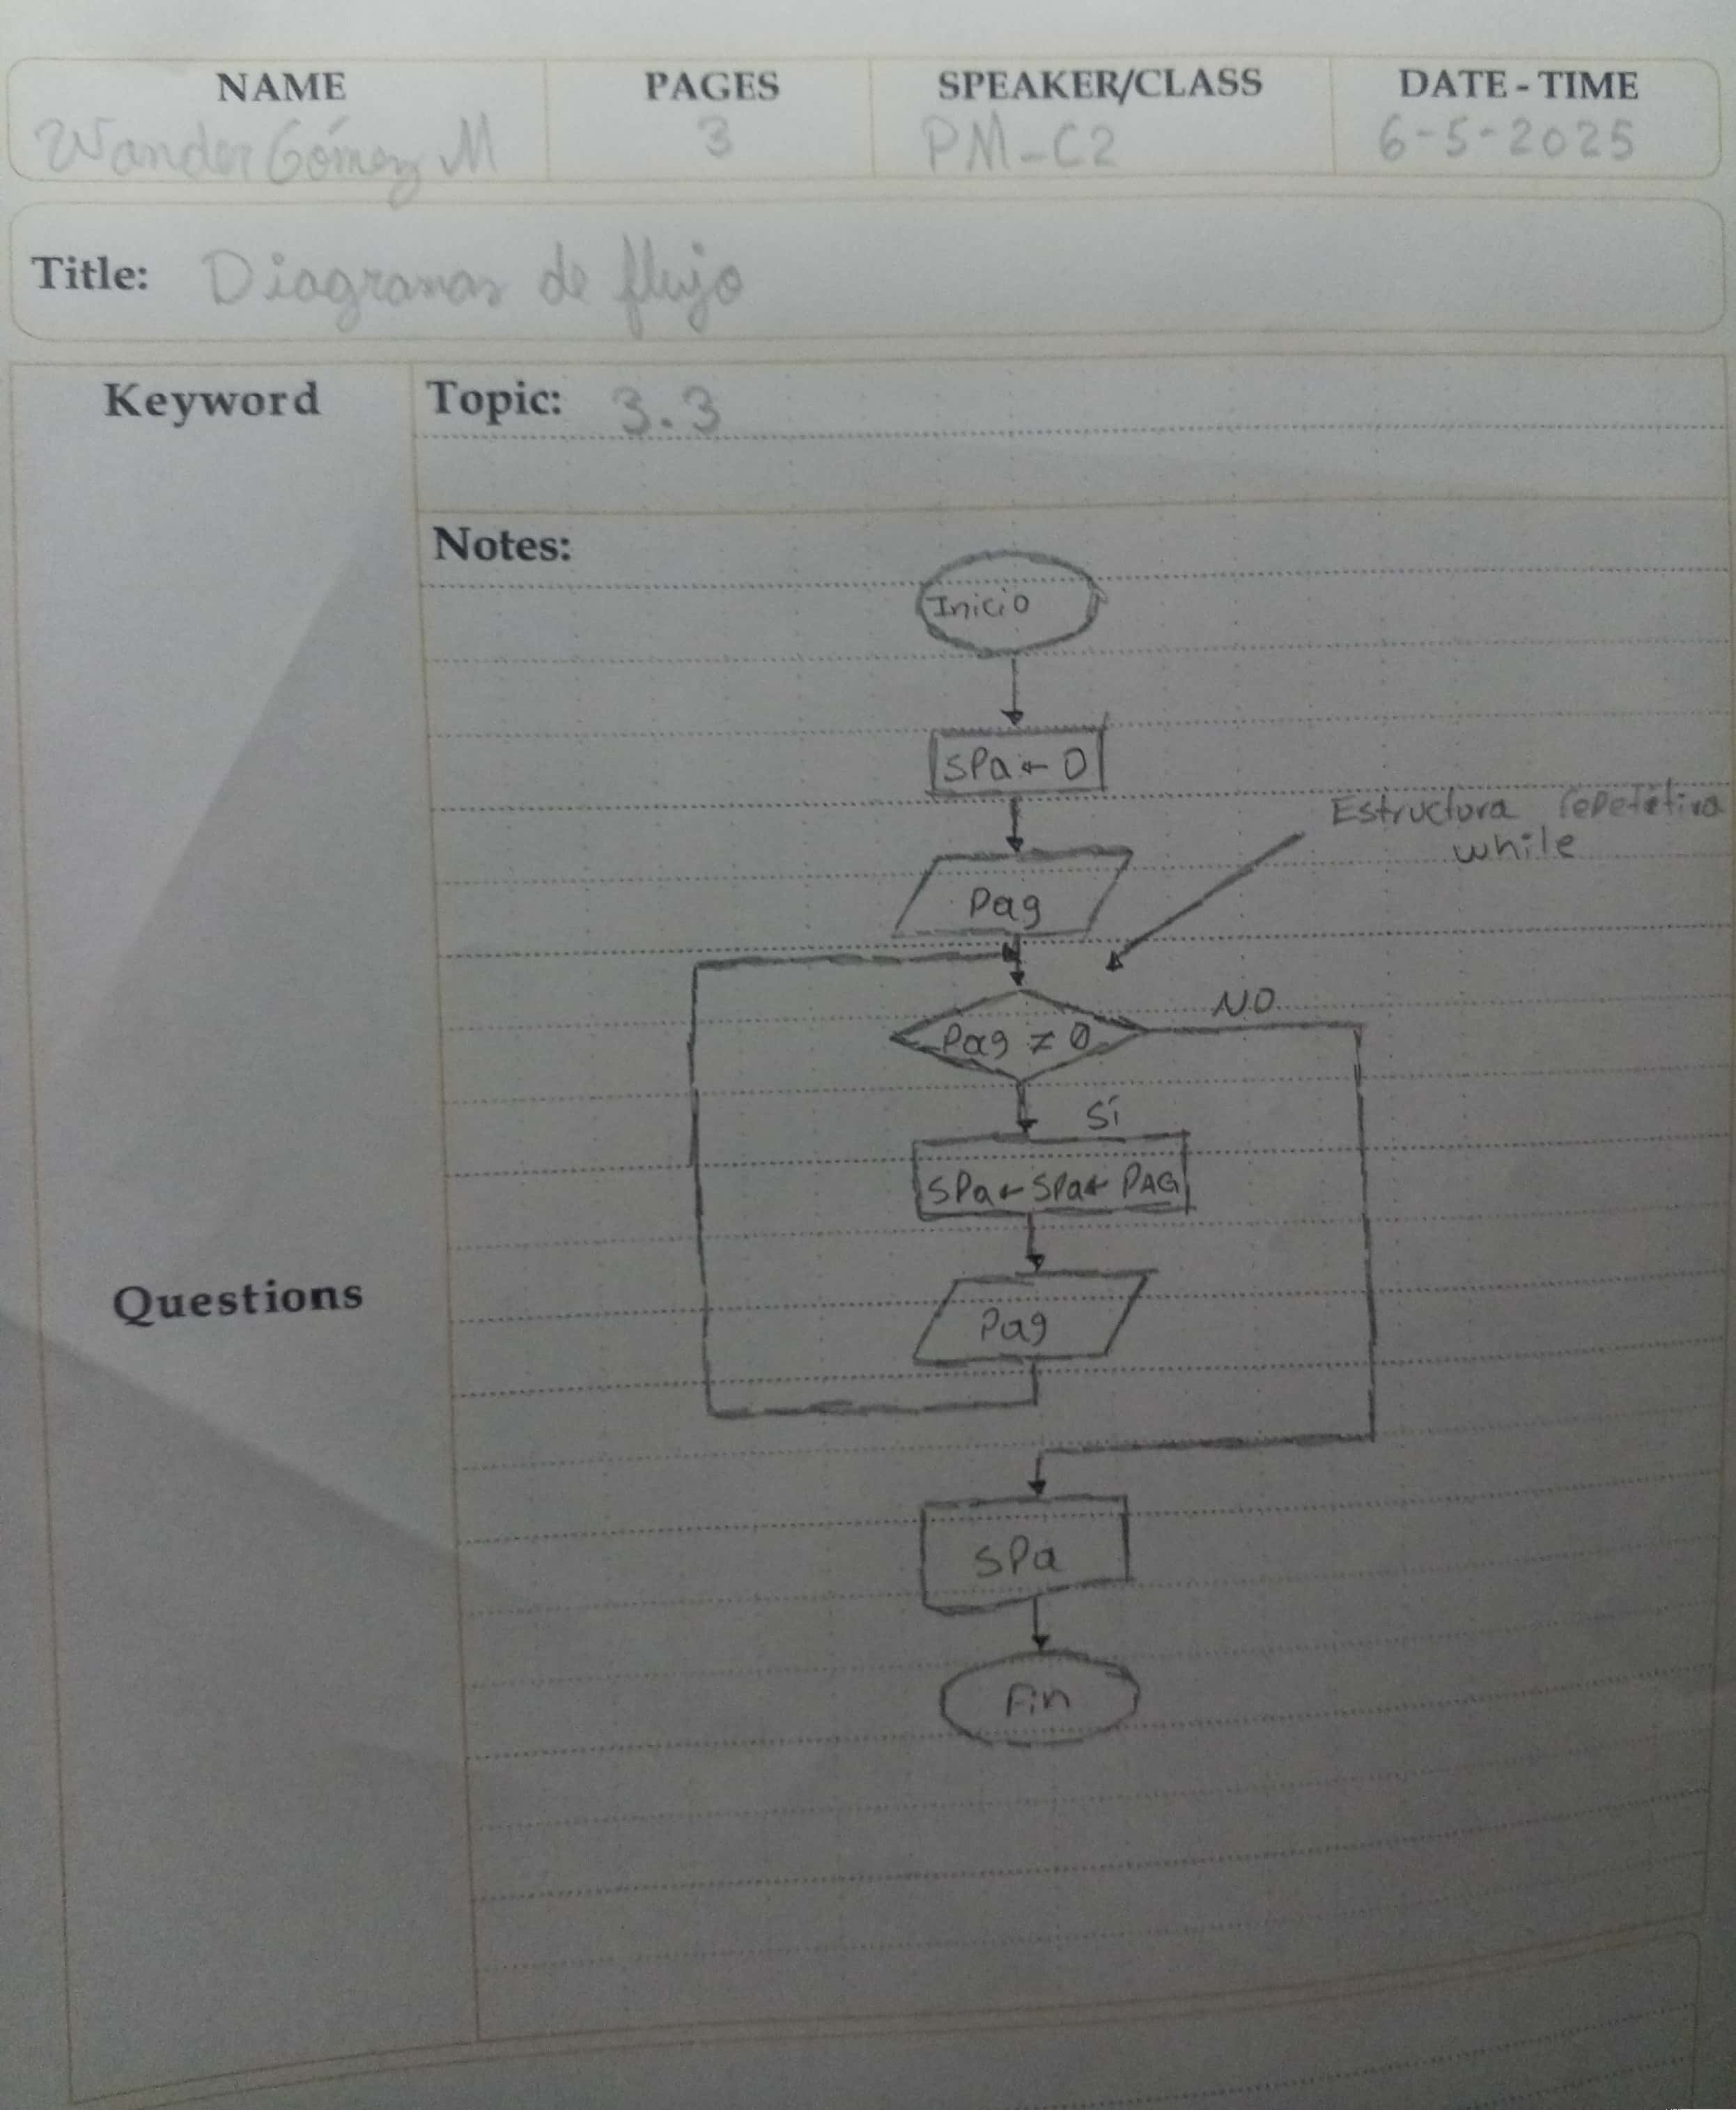 NAME PAGES SPEAKER/CLASS DATE-TIME
Wander Gómez M 3 PM-C2 6-5-2025
Title: Diagramas de flujo
Keyword Topic: 3.3
Notes:
Inicio
SPa ← 0
Estructura repetitiva
while
Pag
NO
Pag ≠ 0
Sí
SPa ← SPa + PAG
Questions
Pag
SPa
Fin